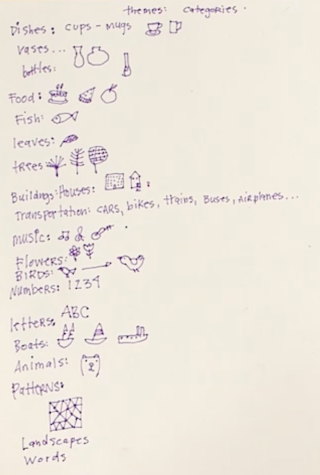 themes: categories.
Dishes: cups - mugs
vases...
bottles:
Food:
Fish:
leaves:
trees
Buildings: Houses:
Transportation: CARS, bikes, trains, Buses, Airplanes...
music:
Flowers:
BIRDS:
Numbers: 1234
letters: ABC
Boats:
Animals:
Patterns:
Landscapes
Words